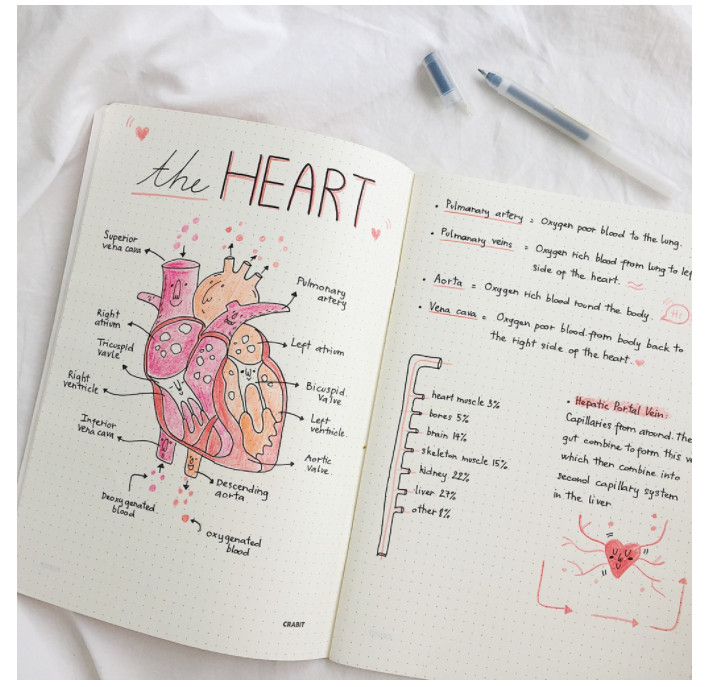 the HEART
Superior
vena cava
Right
atrium
Tricuspid
vavle
Right
ventricle
Inferior
vena cava
Deoxygenated
blood
Pulmonary
artery
Left atrium
Bicuspid
Valve
Left
ventricle
Aortic
valve
Descending
aorta
oxygenated
blood
CRABIT
• Pulmanary artery = Oxygen poor blood to the lung.
• Pulmanary veins = Oxygen rich blood from lung to lef
side of the heart.
• Aorta = Oxygen rich blood round the body.
Hi
• Vena cava = Oxygen poor blood from body back to
the right side of the heart.
heart muscle 3%
bones 5%
brain 14%
skeleton muscle 15%
kidney 22%
liver 27%
other 8%
• Hepatic Portal Vein:
Capillaries from around. The
gut combine to form this v
which then combine into
second capillary system
in the liver